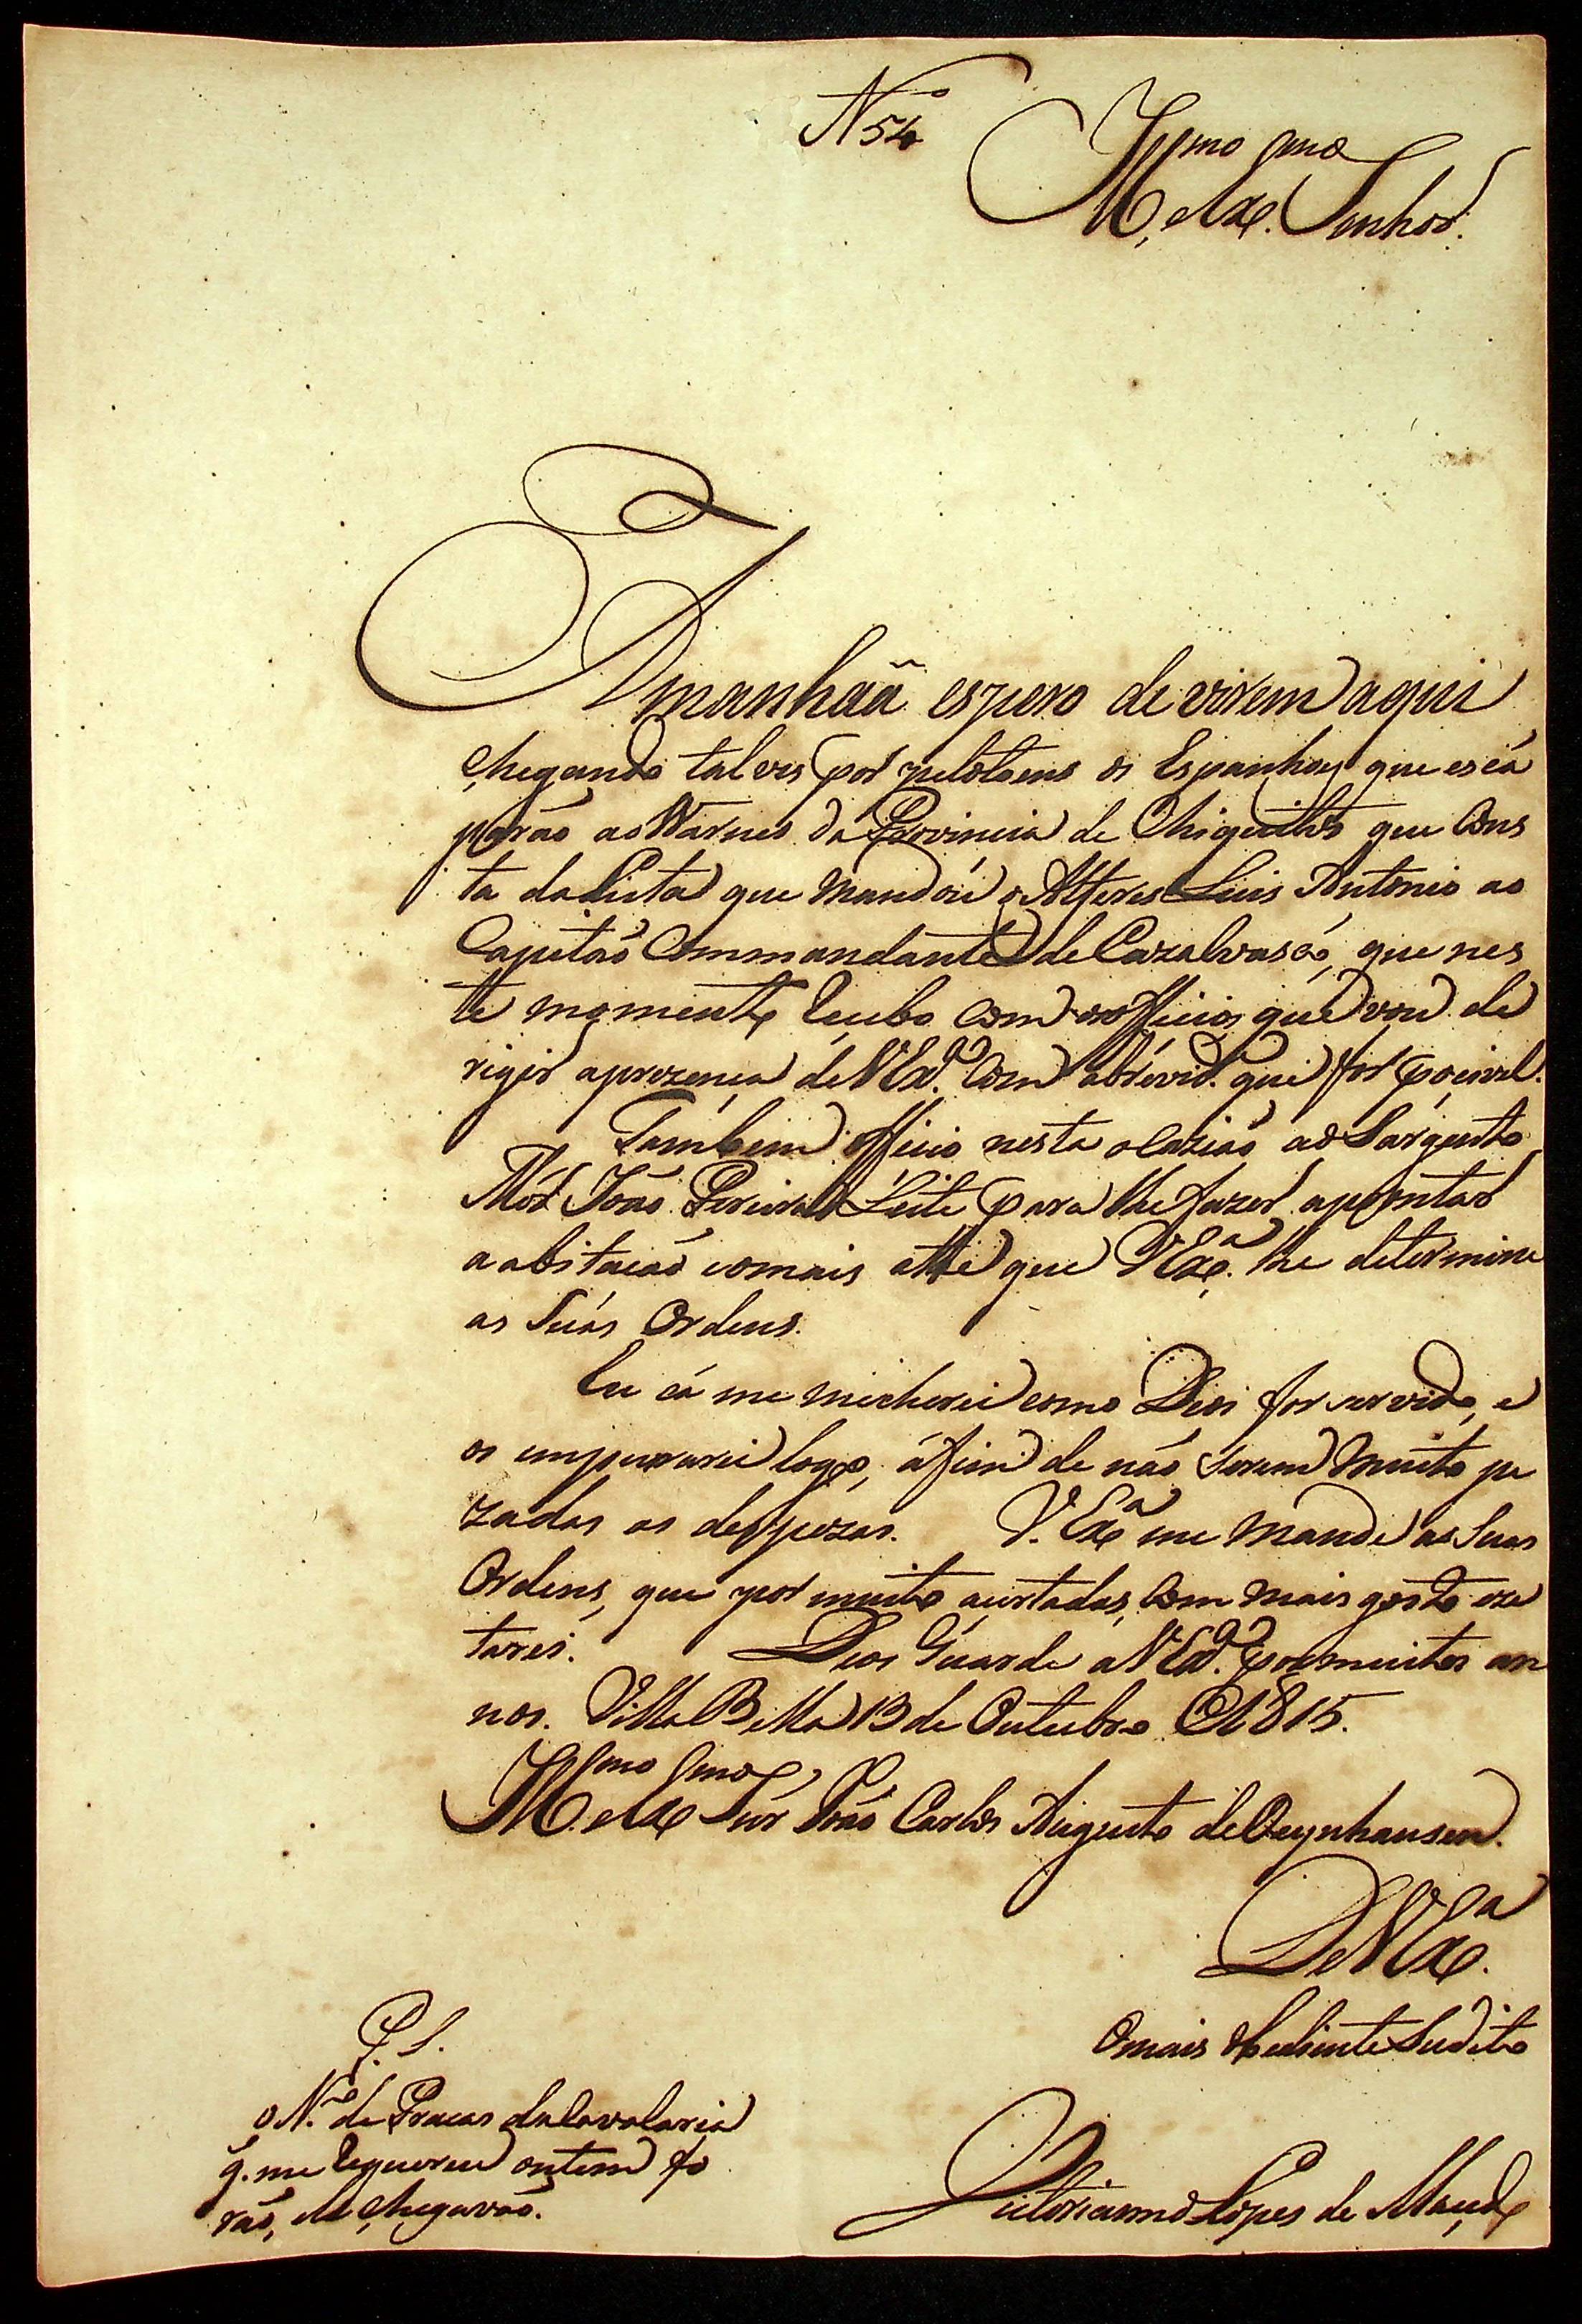 N.º 54
Ill.mo e Ex.mo Senhor.
Amanhaã espero de virem aqui
chegando talves por pelotoens os Espanhoes que escá
parão ao Warnes da Provincia de Chiquitos que Cons
ta da Lista que mandou o Alferes Luis Antonio ao
Capitão Commandante de Cazalvasco, que nes
te momento recebo com os officios que vou de
rigir aprezença de V Ex.ª Com abrevid.e que for pocivel.
Tambem officio nesta ocazião ao Sargento
Mór João Pereira Leite para lhe fazer aprontar
a abitação eomais atté que V Ex.ª lhe determine
as Suas Ordens.
Eu cá me micherei como Deos for servido, e
os empurrarei logo, áfim de não serem muito pe
zadas as despezas. V. Ex.ª me mande as Suas
Ordens, que por muito acertadas, Com mais gosto exe
tarei. Deos Guarde a V Ex.ª por muitos an
nos. Villa Bella 13 de Outubro de 1815.
Ill.mo e Ex.mo Snr João Carlos Augusto de Oeynhausen.
De V Ex.ª
Omais obediente Sudito
Victoriano Lopes de Macedo
P. S.
o N.º de Pracas da Cavalaria
q. me requereu ontem fo
rão, e la chegarão.